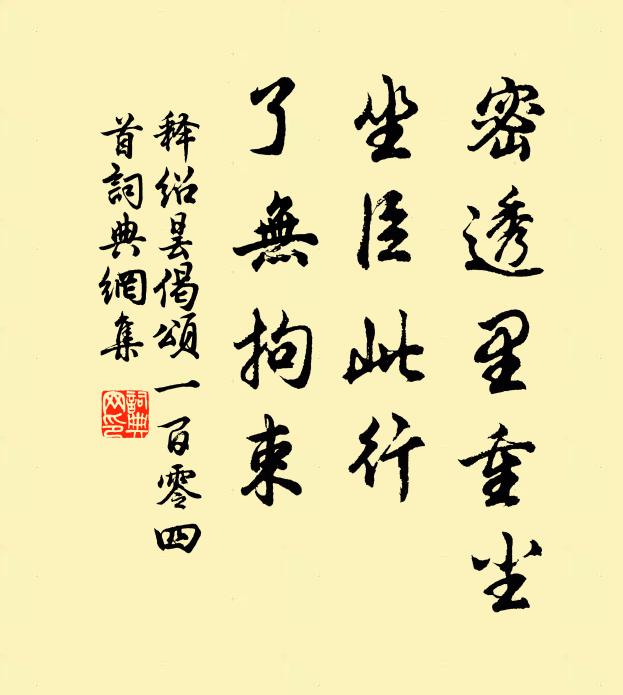 密透里重坐
坐臣此行
了無拘束
释绍昙偈頌一百零四
首詞典網集
詞典
网印